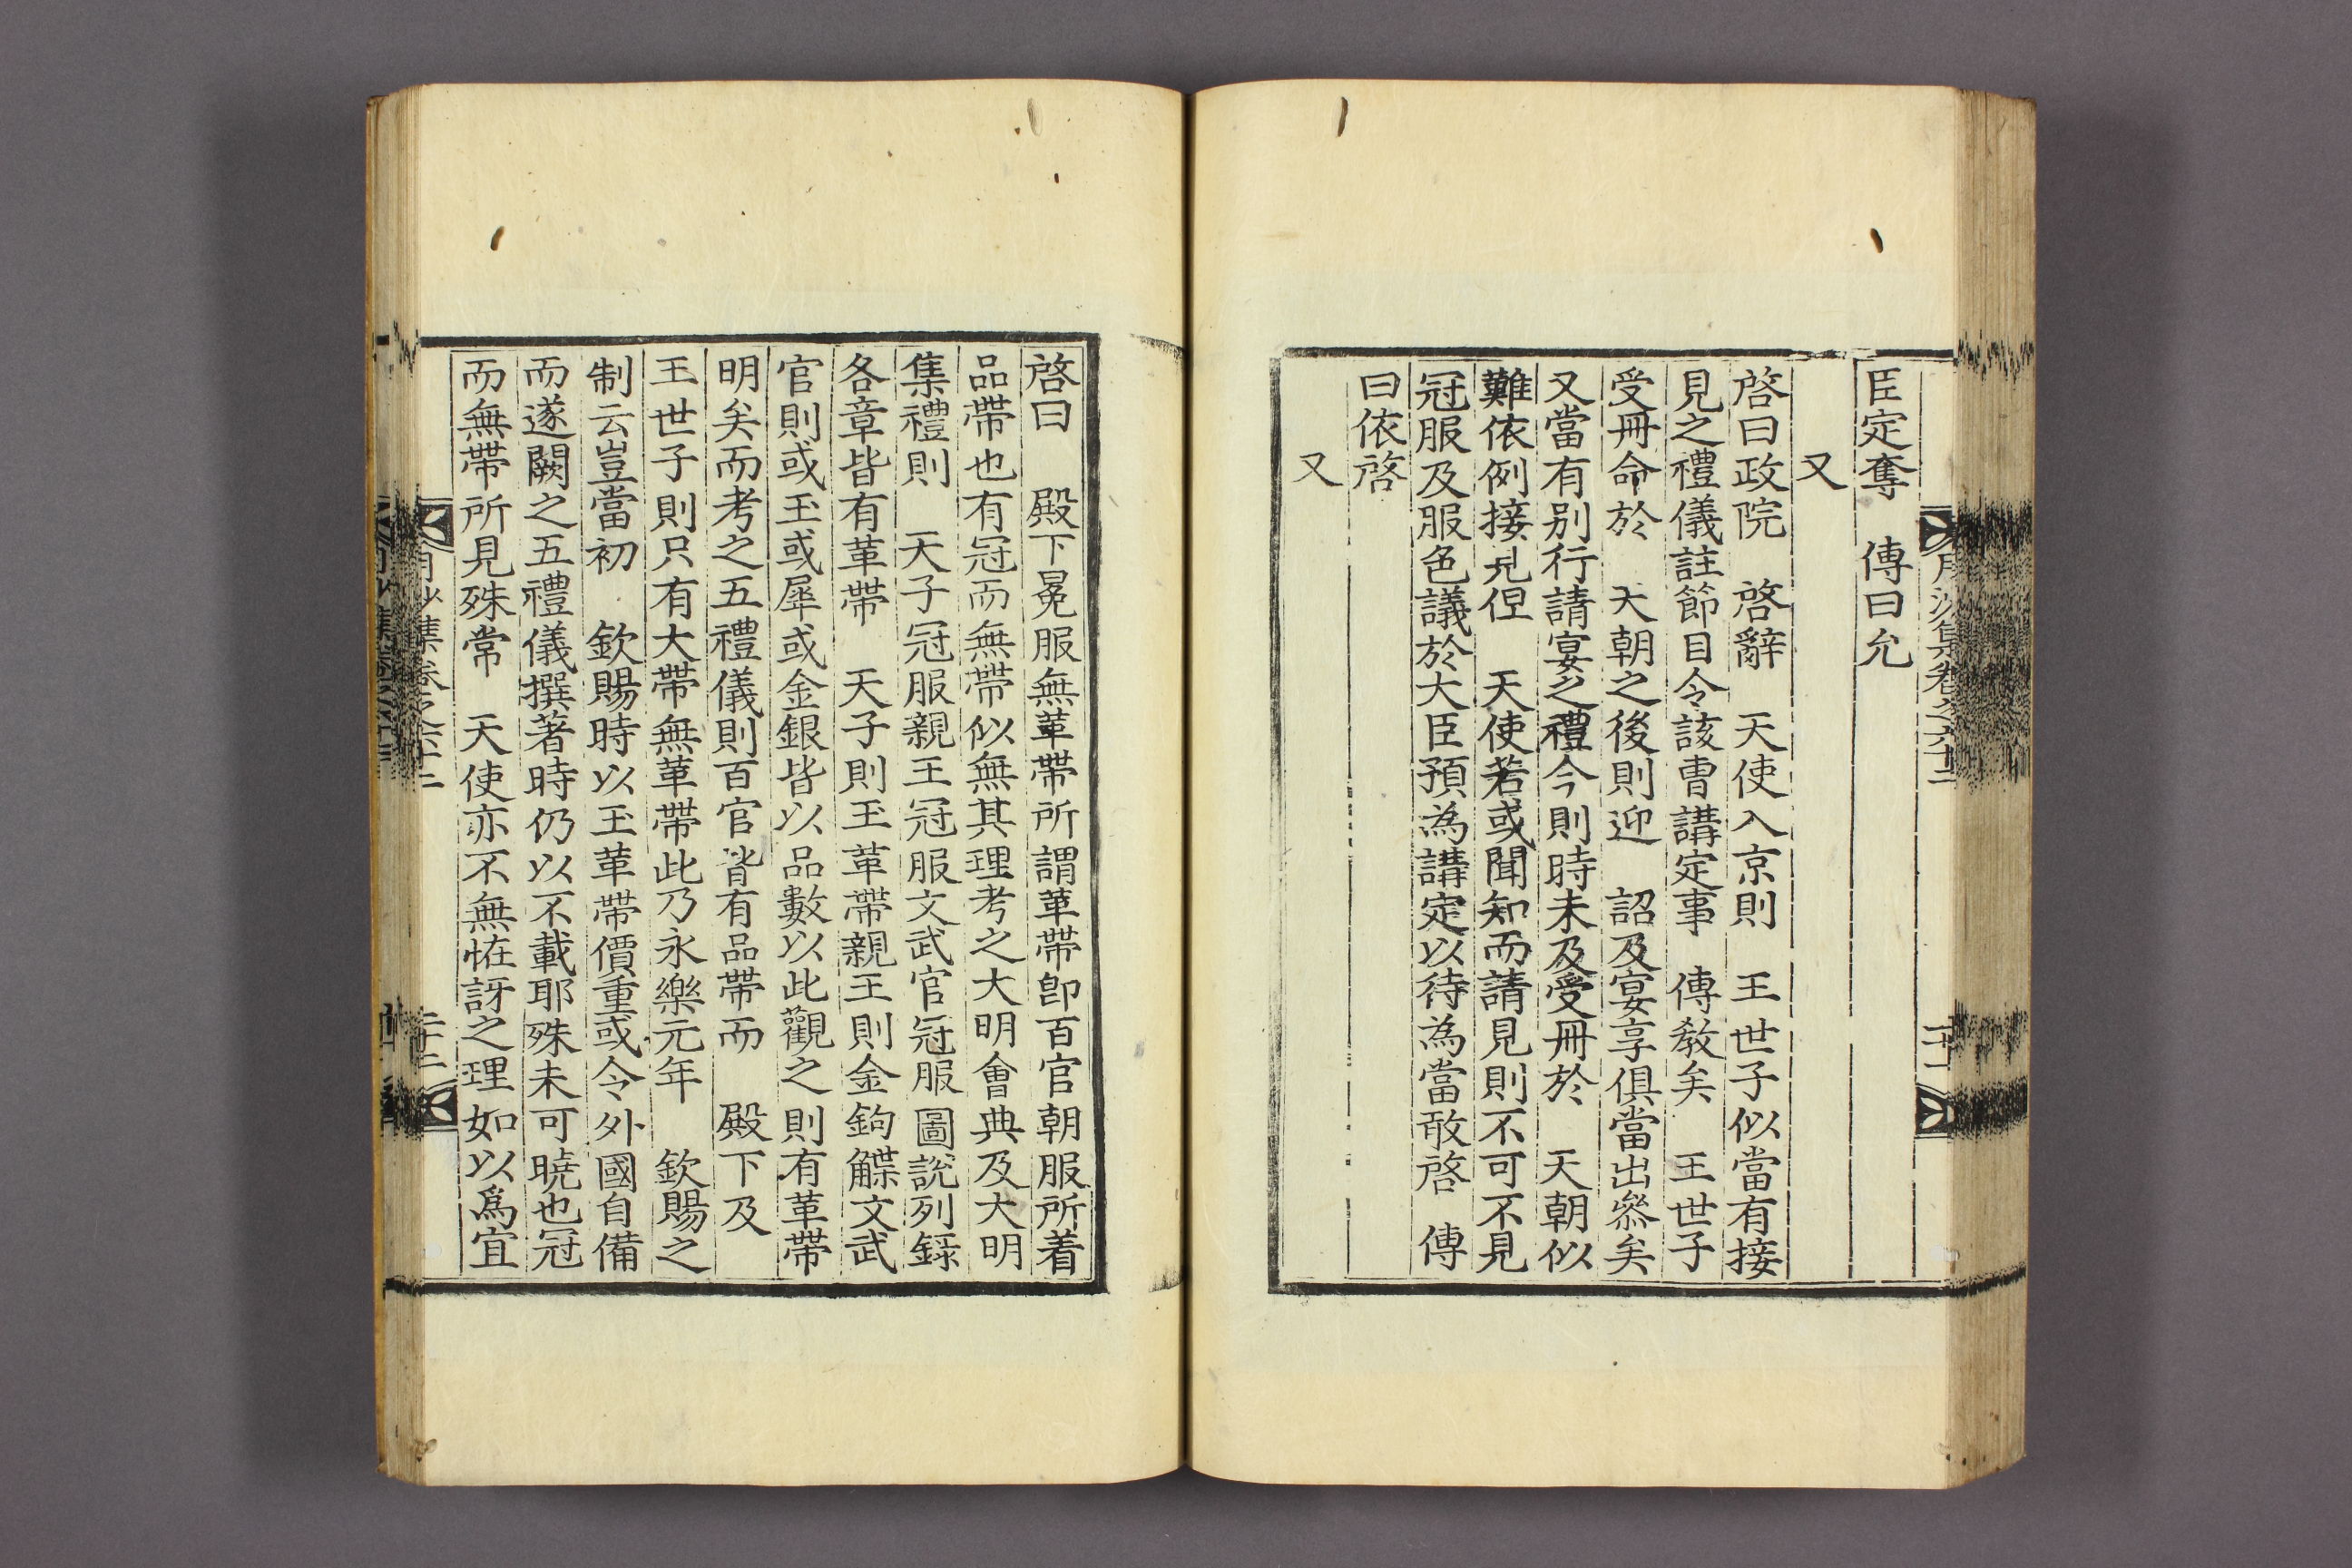 月沙集卷之六十二
二十一
臣定奪　傳曰允
又
啓曰政院　啓辭　天使入京則　王世子似當有接
見之禮儀註節目令該曹講定事　傳敎矣　王世子
受冊命於　天朝之後則迎　詔及宴享俱當出叅矣
又當有別行請宴之禮今則時未及受冊於　天朝似
難依例接見但　天使若或聞知而請見則不可不見
冠服及服色議於大臣預為講定以待為當敢啓　傳
曰依啓
又
啓曰　殿下冕服無革帶所謂革帶卽百官朝服所着
品帶也有冠而無帶似無其理考之大明會典及大明
集禮則　天子冠服親王冠服文武官冠服圖說列錄
各章皆有革帶　天子則玉革帶親王則金鉤䚢文武
官則或玉或犀或金銀皆以品數以此觀之則有革帶
明矣而考之五禮儀則百官皆有品帶而　殿下及
王世子則只有大帶無革帶此乃永樂元年　欽賜之
制云豈當初　欽賜時以玉革帶價重或令外國自備
而遂闕之五禮儀撰著時仍以不載耶殊未可曉也冠
而無帶所見殊常　天使亦不無恠訝之理如以爲宜
月沙集卷之六十二
二十二